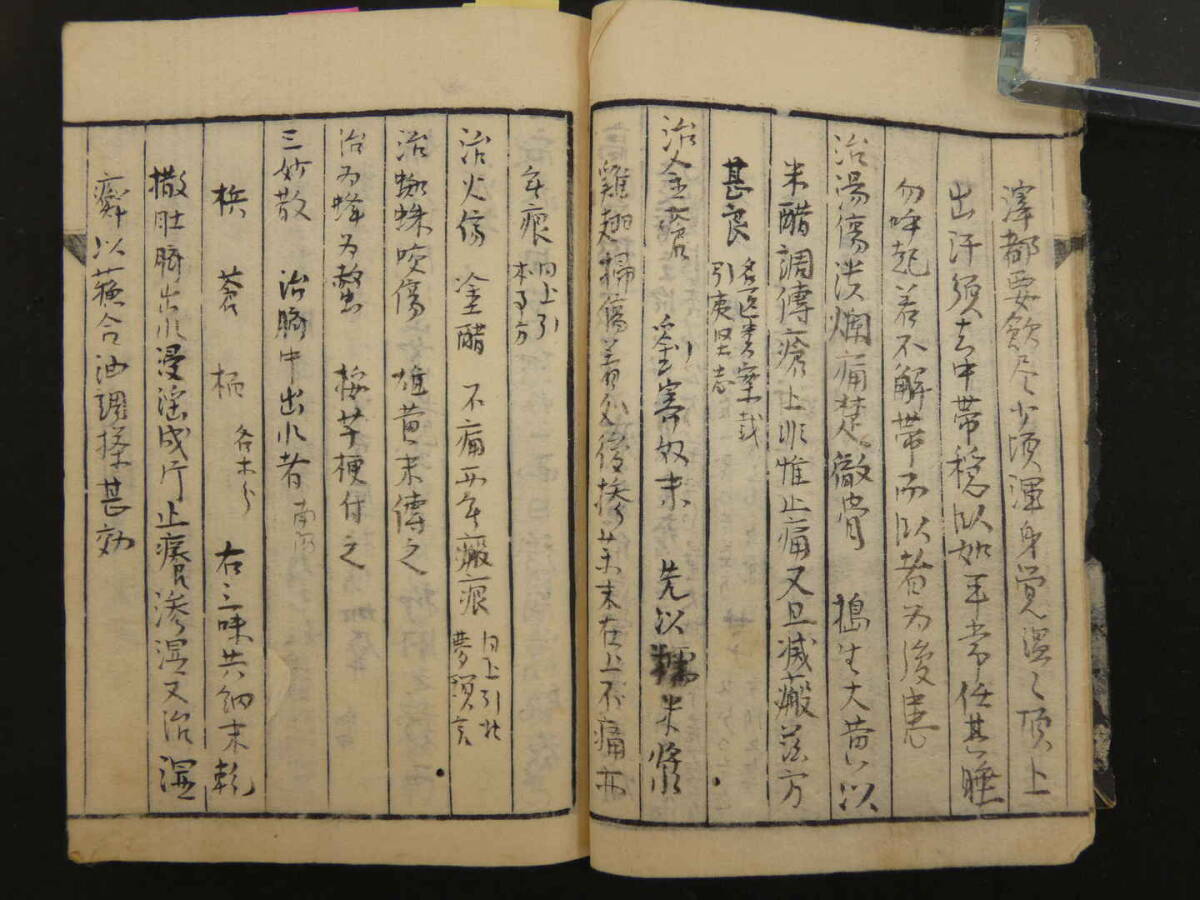 滓都要飲尽少頃渾身覚温〻頂上
出汗須去中帯穏臥如平常任其睡
勿呼起若不解帯而臥者為後患
治湯傷潰爛痛楚徹骨 搗生大黄以
米醋調傅瘡上非惟止痛又且滅瘢茲方
甚良 名医類案載 引夷堅志
治金瘡 劉寄奴末 先以糯米漿
雞翅掃傷着処後摻末在上不痛亦
無痕 同上引 本事方
治火傷 塗醋 不痛亦無瘢痕 同上引北夢瑣言
治蜘蛛咬傷 雄黄末傅之
治為蜂為螫 梅芋梗付之
三妙散 治臍中出水者
梹 蒼 栢 各木分 右三味共細末乾
撒肚臍出水浸淫成片止癢滲湿又治湿
癬以蘓合油調搽甚効